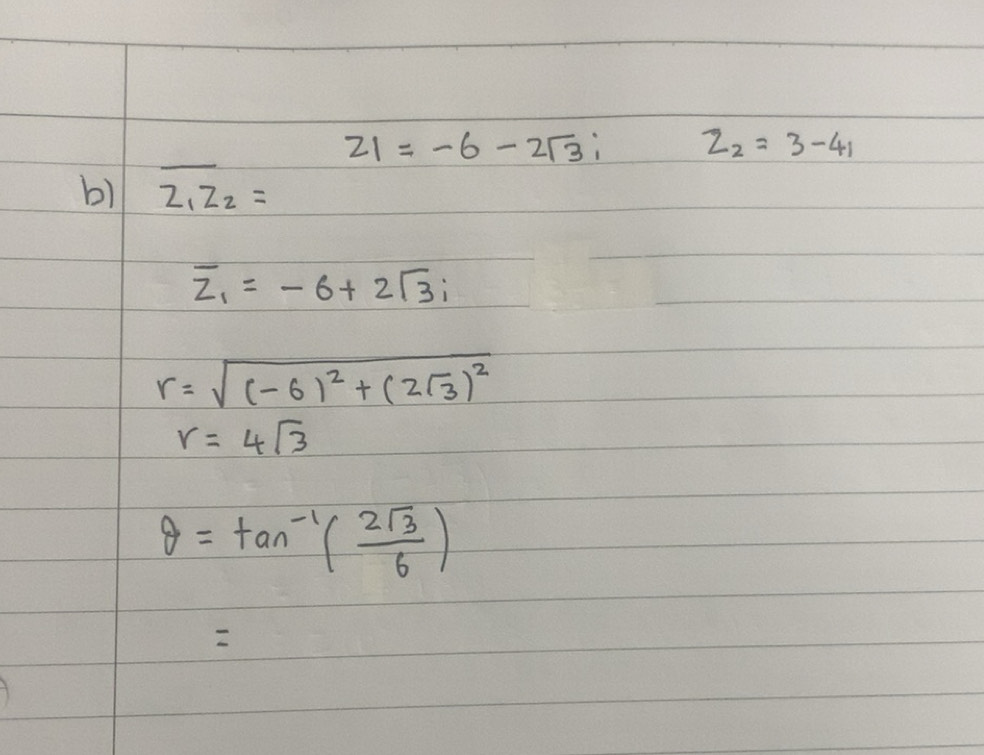 Z1 = -6 - 2√3 i Z₂ = 3-4i
b) \overline{Z₁Z₂} =
\overline{Z}₁ = -6 + 2√3 i
r = √((-6)² + (2√3)²)
r = 4√3
θ = tan⁻¹(2√3/6)
=